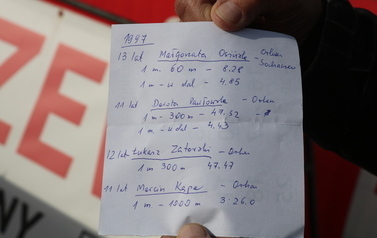 1997
13 lat Małgorzata Osińska - Orkan
Sochaczew
1 m. 60 m - 8.28
1 m - w dal - 4.85
11 lat Dorota Pawłowska - Orkan
1 m - 300 m - 47.52
1 m - w dal - 4.43
12 lat Łukasz Zatorski - Orkan
1 m 300 m 47.47
11 lat Marcin Kąpa - Orkan
1 m - 1000 m 3.26.0
ZE
NY